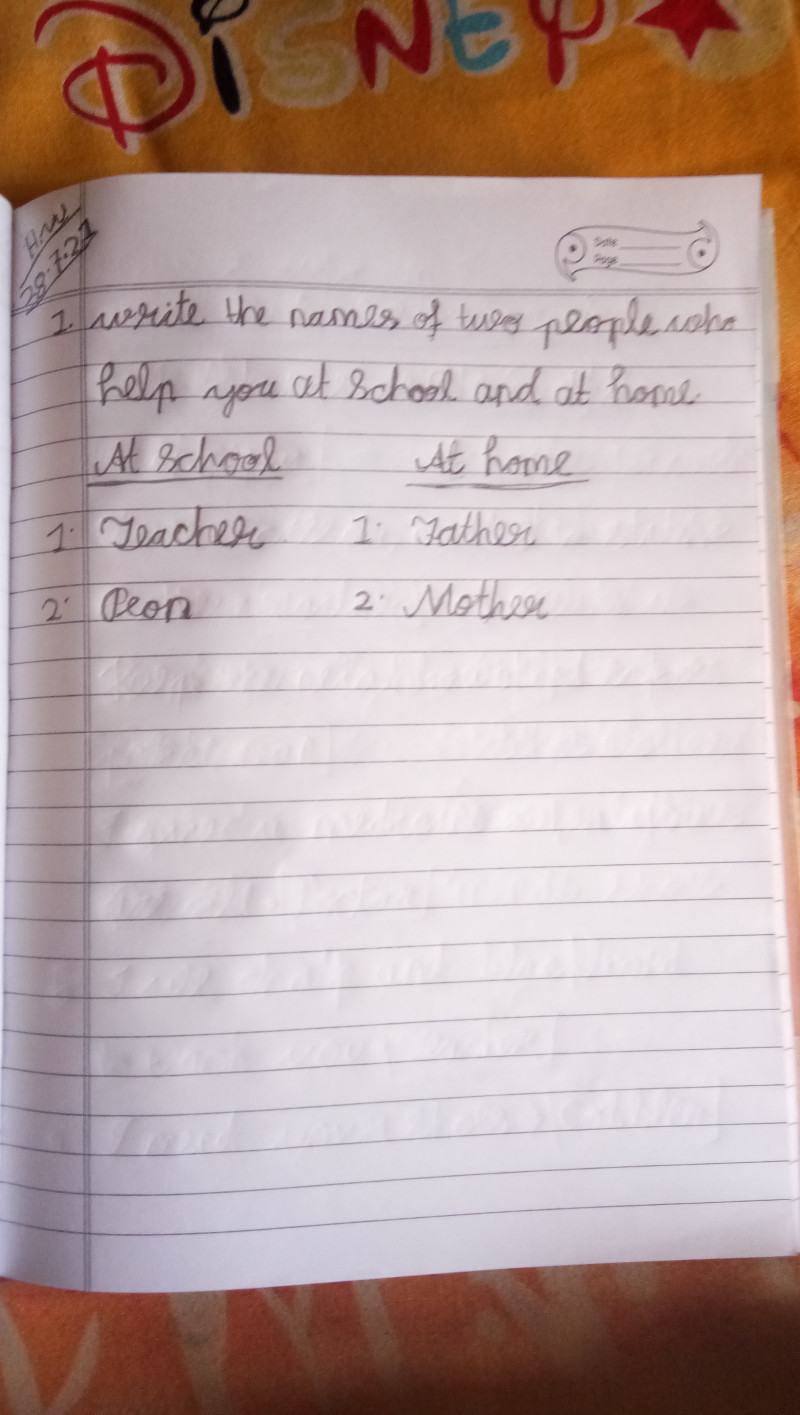 DISNEY
H.W
28.7.21
Date
Page
1. write the names of two people who
help you at school and at home
At school At home
1. Teacher 1. Father
2. Peon 2. Mother